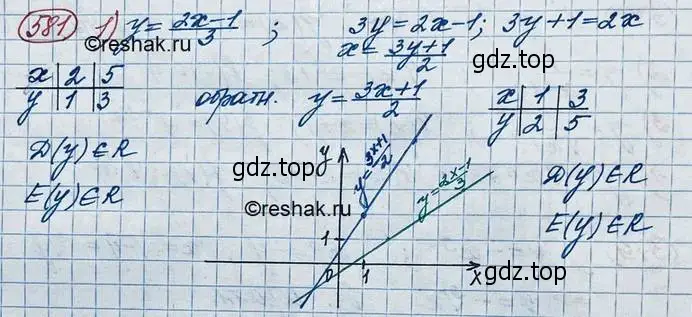 581 1) y = (2x-1)/3 ; 3y = 2x-1; 3y+1 = 2x
©reshak.ru
x = (3y+1)/2
gdz.top
x | 2 | 5
y | 1 | 3
обратн. y = (3x+1)/2
x | 1 | 3
y | 2 | 5
gdz.top
D(y) ∈ R
E(y) ∈ R
y
y = (3x+1)/2
gdz.top
y = (2x-1)/3
©reshak.ru
D(y) ∈ R
E(y) ∈ R
gdz.top
1
0 1 x
gdz.top